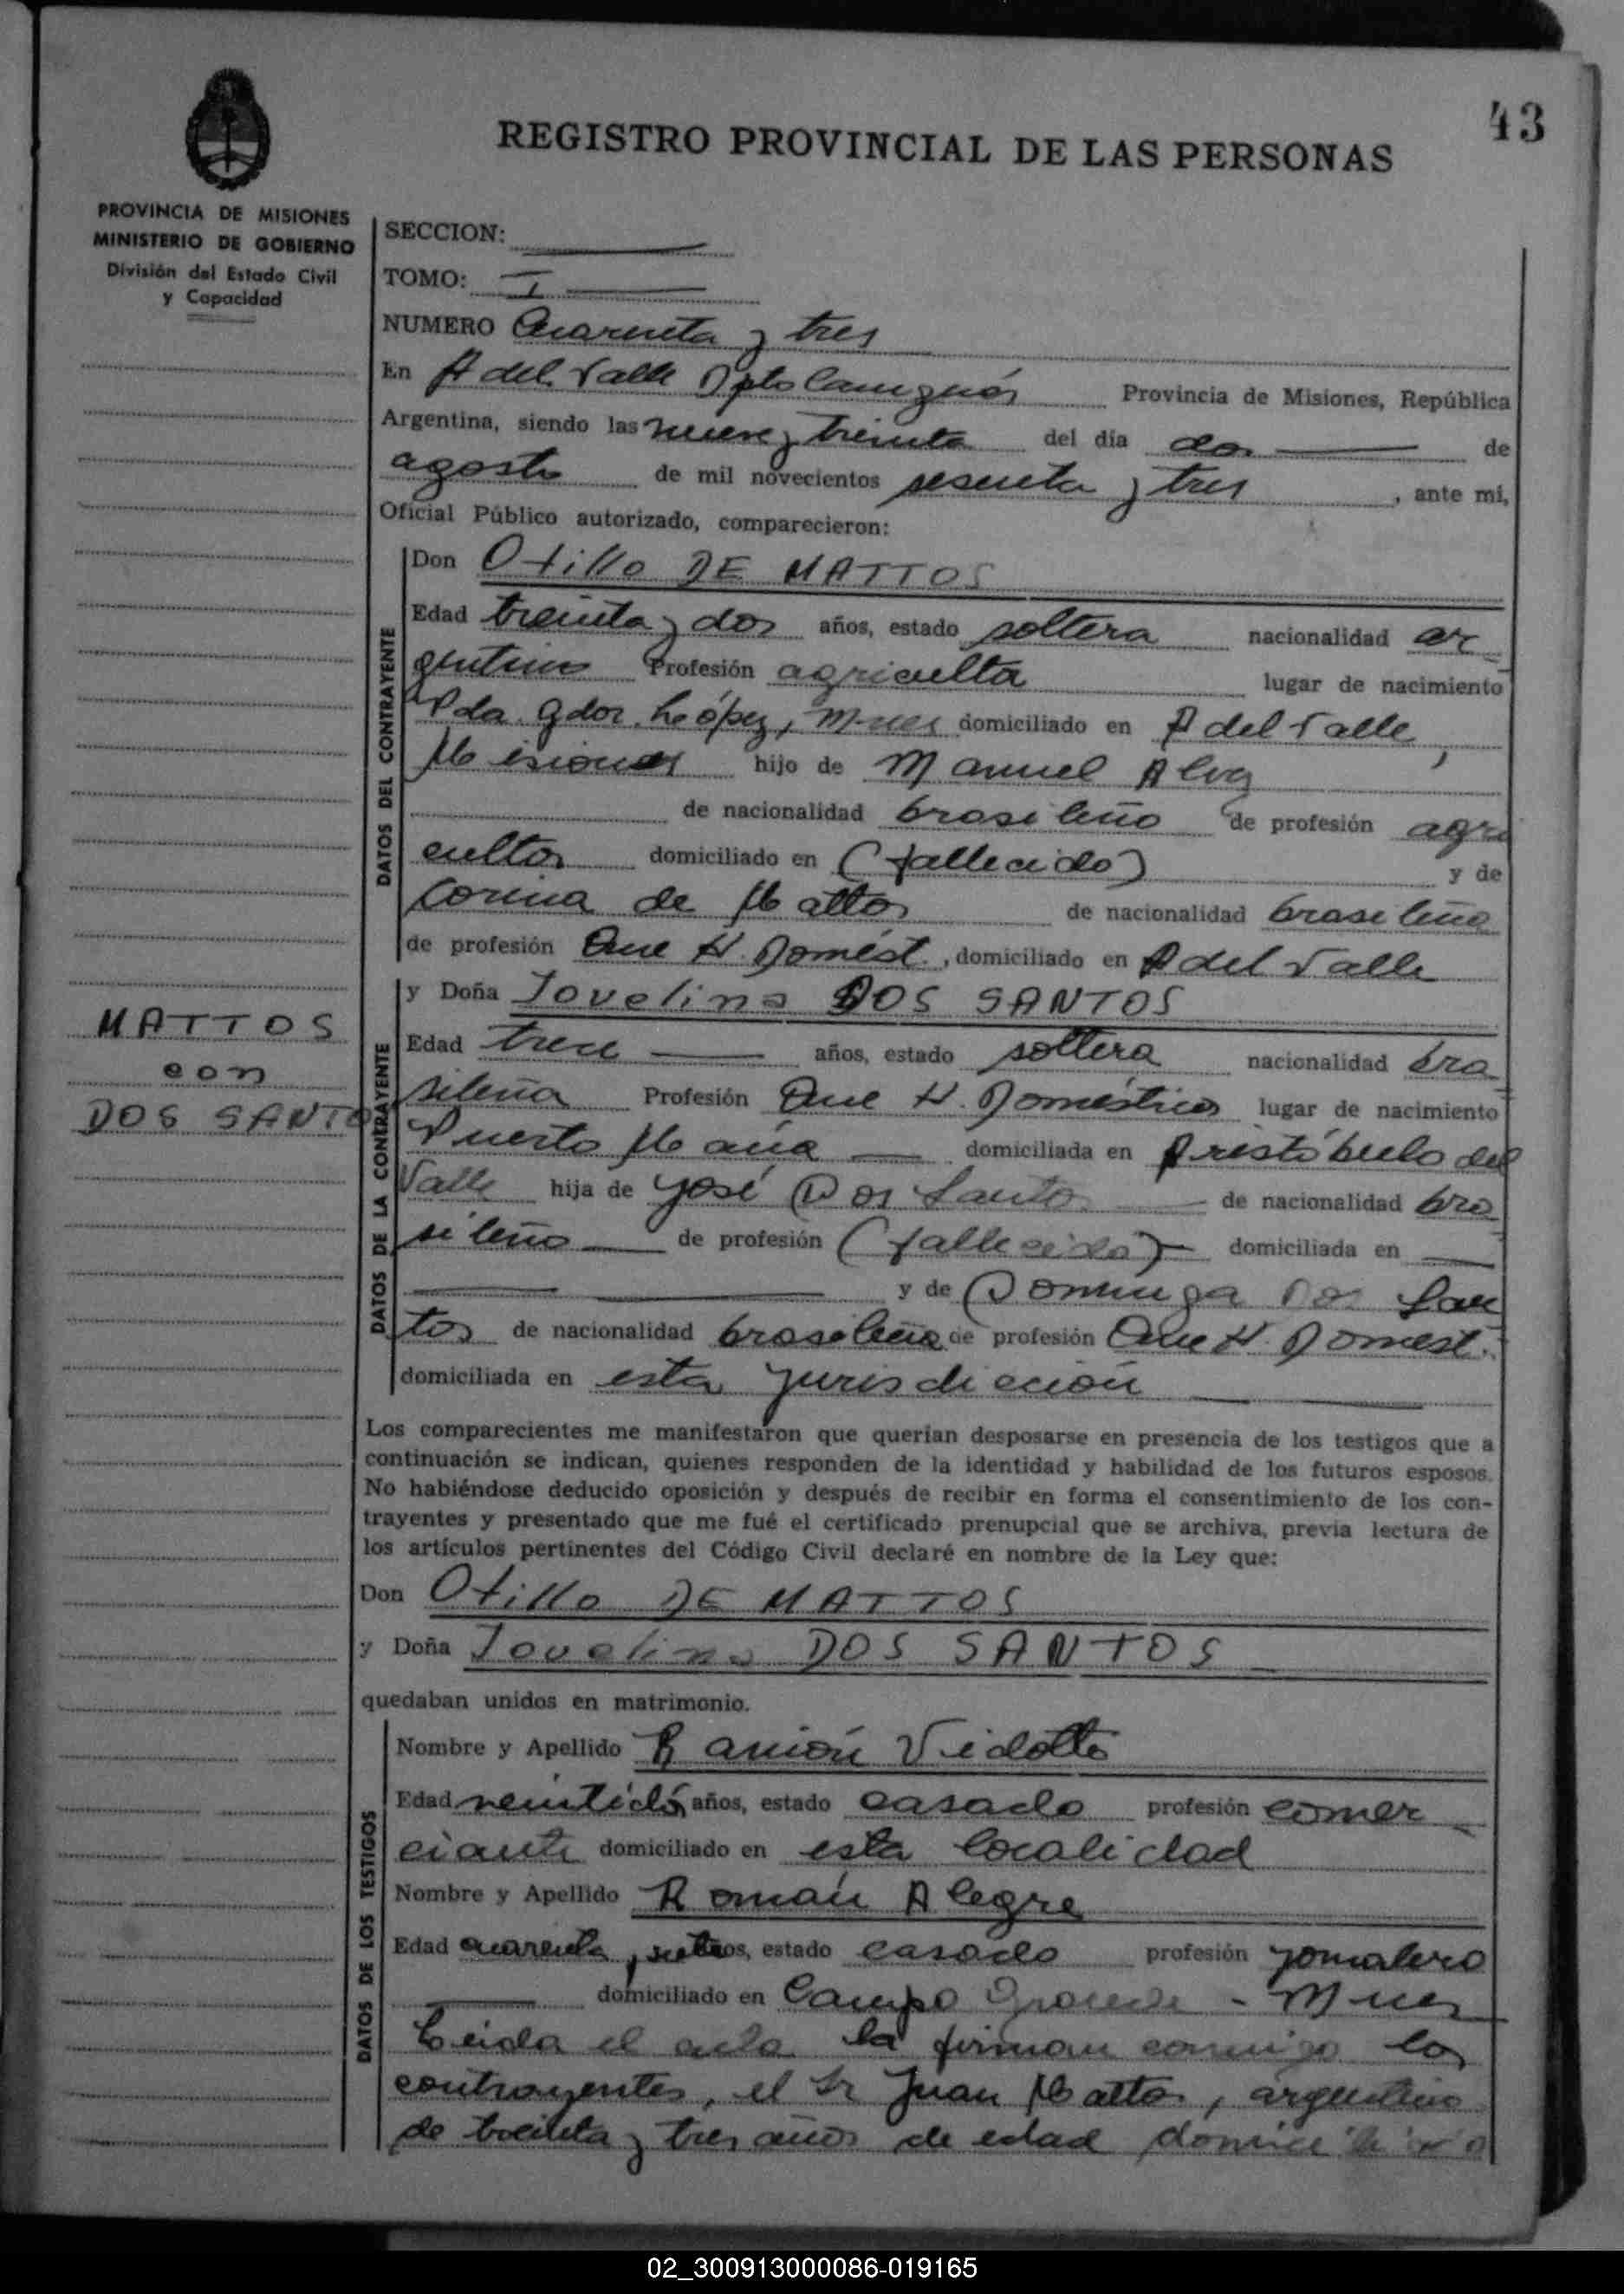 43
REGISTRO PROVINCIAL DE LAS PERSONAS
PROVINCIA DE MISIONES
MINISTERIO DE GOBIERNO
División del Estado Civil
y Capacidad
SECCION:
TOMO: I
NUMERO Cuarenta y tres
En A del Valle Dpto Cainguás Provincia de Misiones, República
Argentina, siendo las nueve y treinta del día dos de
agosto de mil novecientos sesenta y tres, ante mí,
Oficial Público autorizado, comparecieron:
DATOS DEL CONTRAYENTE
Don Otillo DE MATTOS
Edad treinta y dos años, estado soltera nacionalidad ar
gentino Profesión agriculta lugar de nacimiento
Pda. Gdor. López, Mnes domiciliado en A del Valle,
Misiones hijo de Manuel Alvez
de nacionalidad brasileño de profesión agri
cultor domiciliado en (fallecido) y de
Corina de Mattos de nacionalidad brasileña
de profesión Que H. Domést., domiciliado en A del Valle
MATTOS
con
DOS SANTO
DATOS DE LA CONTRAYENTE
y Doña Jovelina DOS SANTOS
Edad trece años, estado soltera nacionalidad bra
sileña Profesión Que H. Domésticos lugar de nacimiento
Puerto Mauá domiciliada en Aristóbulo del
Valle hija de José Dos Santos de nacionalidad bra
sileño de profesión (fallecido) domiciliada en
y de Dominga Dos San
tos de nacionalidad brasileña de profesión Que H. Domest.
domiciliada en esta jurisdicción
Los comparecientes me manifestaron que querían desposarse en presencia de los testigos que a
continuación se indican, quienes responden de la identidad y habilidad de los futuros esposos.
No habiéndose deducido oposición y después de recibir en forma el consentimiento de los con-
trayentes y presentado que me fué el certificado prenupcial que se archiva, previa lectura de
los artículos pertinentes del Código Civil declaré en nombre de la Ley que:
Don Otillo DE MATTOS
y Doña Jovelina DOS SANTOS
quedaban unidos en matrimonio.
DATOS DE LOS TESTIGOS
Nombre y Apellido Ramón Vidotto
Edad veintidós años, estado casado profesión comer
ciante domiciliado en esta localidad
Nombre y Apellido Román Alegre
Edad cuarenta y siete años, estado casado profesión jornalero
domiciliado en Campo Grande - Mnes
Leida el acta la firman conmigo los
contrayentes, el Sr Juan Mattos, argentino
de treinta y tres años de edad domiciliado
02_300913000086-019165